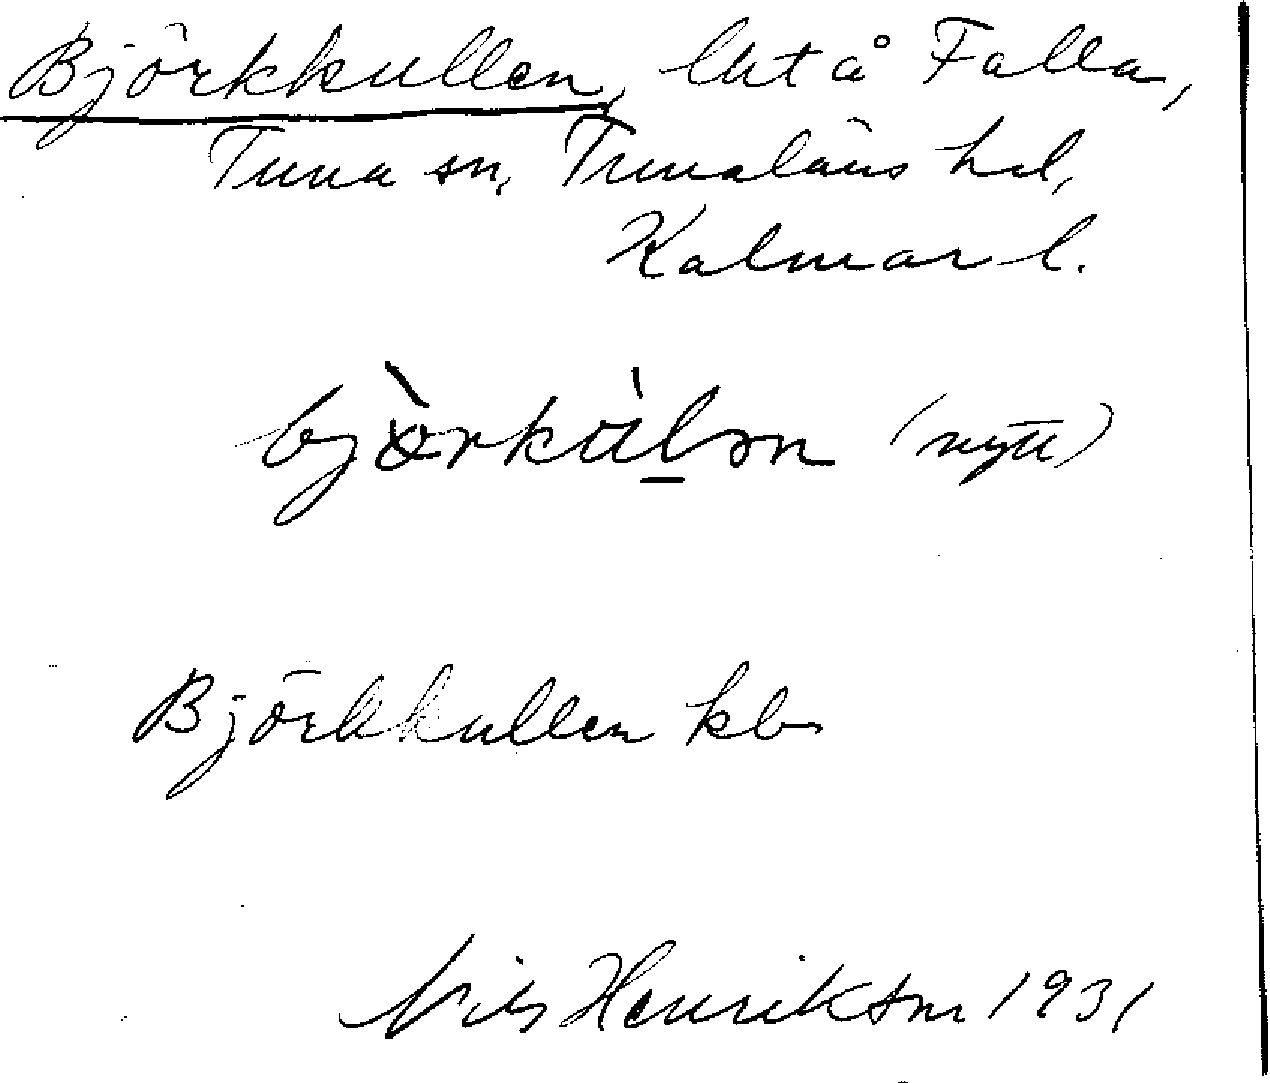 Björkkullen, lht å Falla,
Tuna sn, Tunaläns hd,
Kalmar l.
bjö̀rkùlən (nytt)
Björkkullen kb
Nils Henrikson 1931